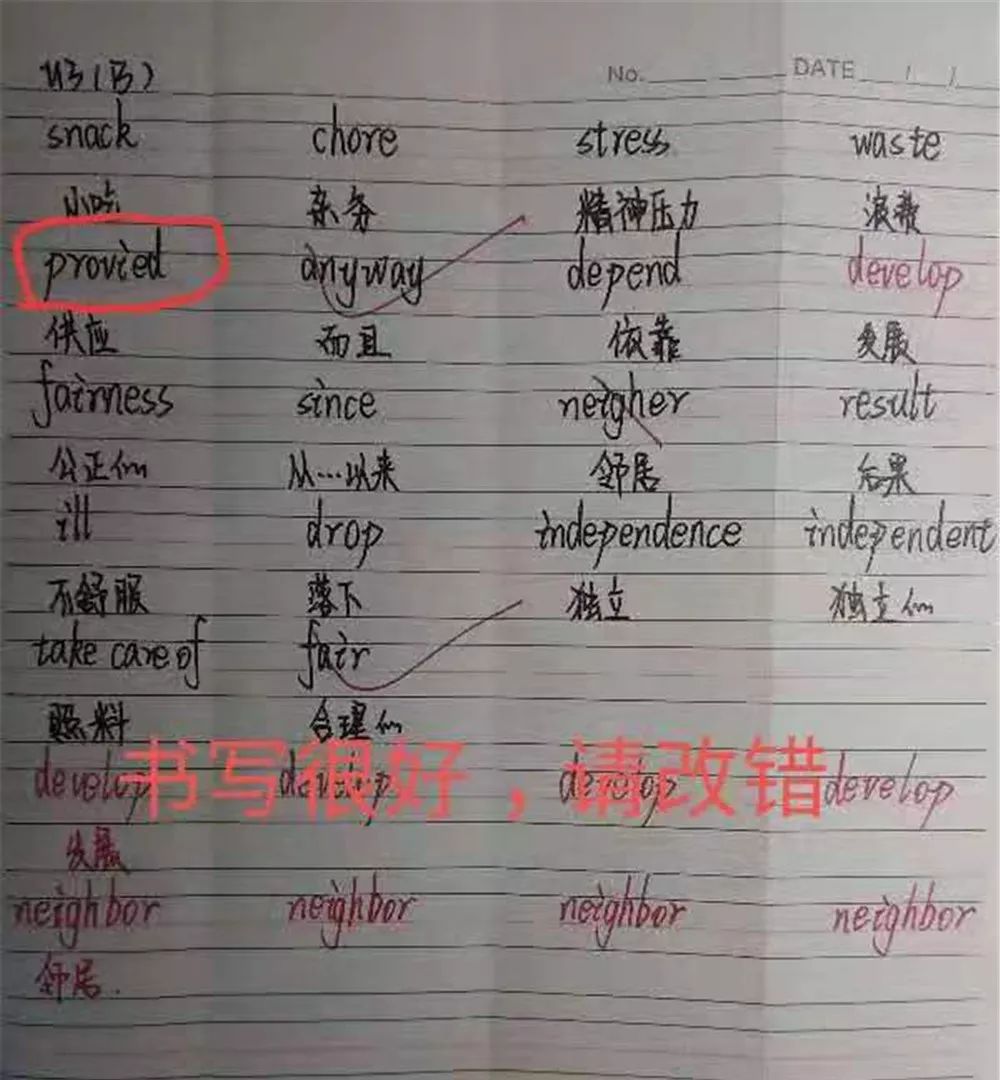 U3(B) No. DATE / /
snack chore stress waste
小吃 杂务 精神压力 浪费
provied anyway depend develop
供应 而且 依靠 发展
fairness since neigher result
公正的 从…以来 邻居 后果
ill drop independence independent
不舒服 落下 独立 独立的
take care of fair
照料 合理的
书写很好，请改错
develop develop develop develop
发展
neighbor neighbor neighbor neighbor
邻居.